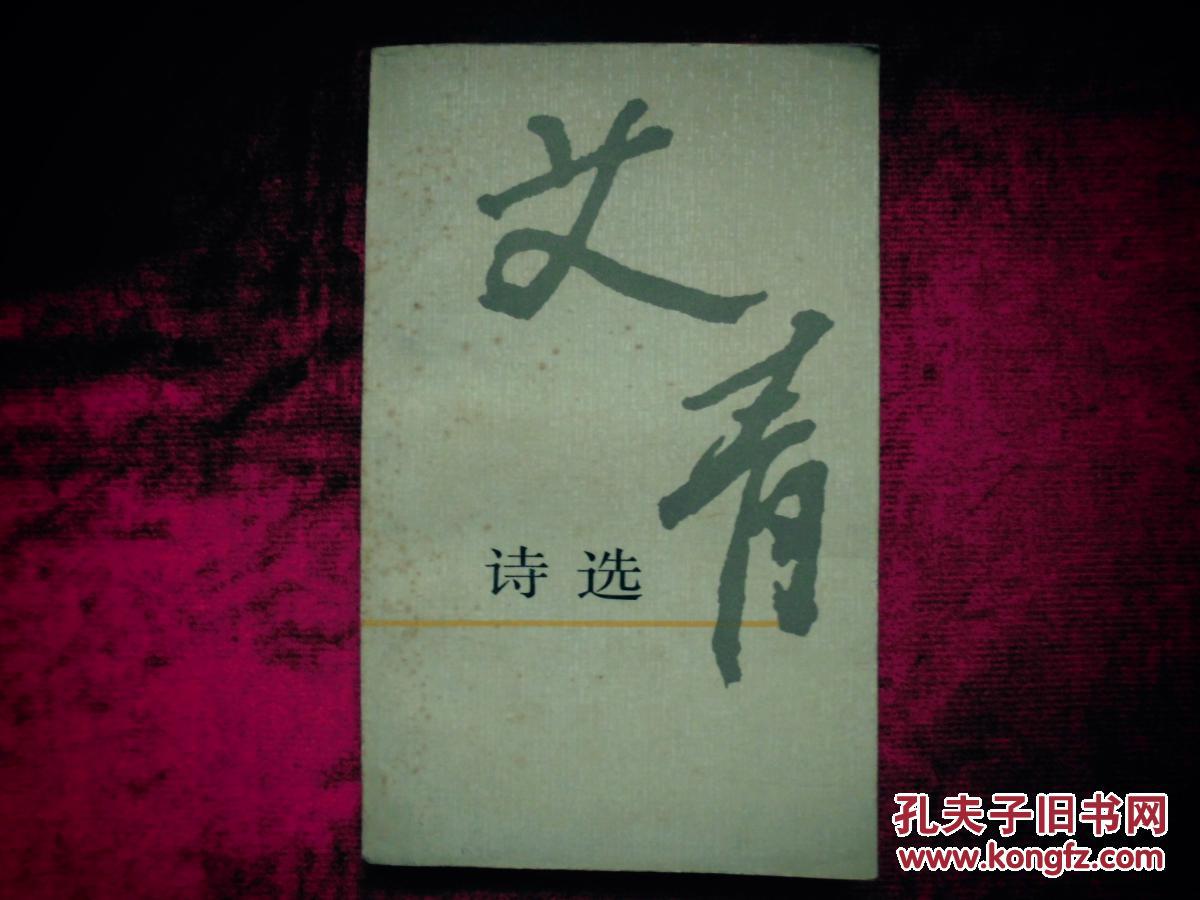 艾青
诗选
孔夫子旧书网
www.kongfz.com